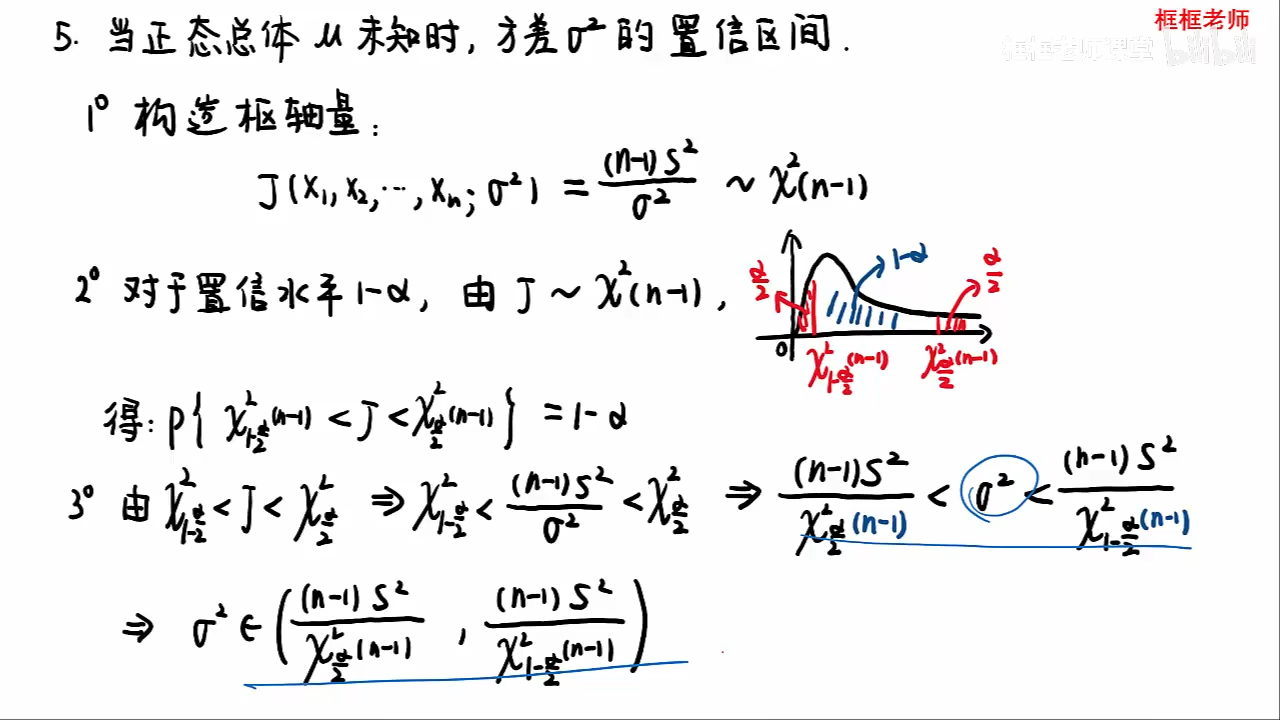 框框老师
框框老师课堂 bilibili
5. 当正态总体 μ 未知时, 方差 σ² 的置信区间.
1° 构造枢轴量:
J(X₁, X₂, ⋯, Xₙ; σ²) = (n-1)S²/σ² ~ χ²(n-1)
2° 对于置信水平 1-α, 由 J ~ χ²(n-1),
α/2 1-α α/2
0 χ²_{1-α/2}(n-1) χ²_{α/2}(n-1)
得: P{ χ²_{1-α/2}(n-1) < J < χ²_{α/2}(n-1) } = 1-α
3° 由 χ²_{1-α/2} < J < χ²_{α/2} ⇒ χ²_{1-α/2} < (n-1)S²/σ² < χ²_{α/2} ⇒ (n-1)S²/χ²_{α/2}(n-1) < σ² < (n-1)S²/χ²_{1-α/2}(n-1)
⇒ σ² ∈ ( (n-1)S²/χ²_{α/2}(n-1) , (n-1)S²/χ²_{1-α/2}(n-1) )